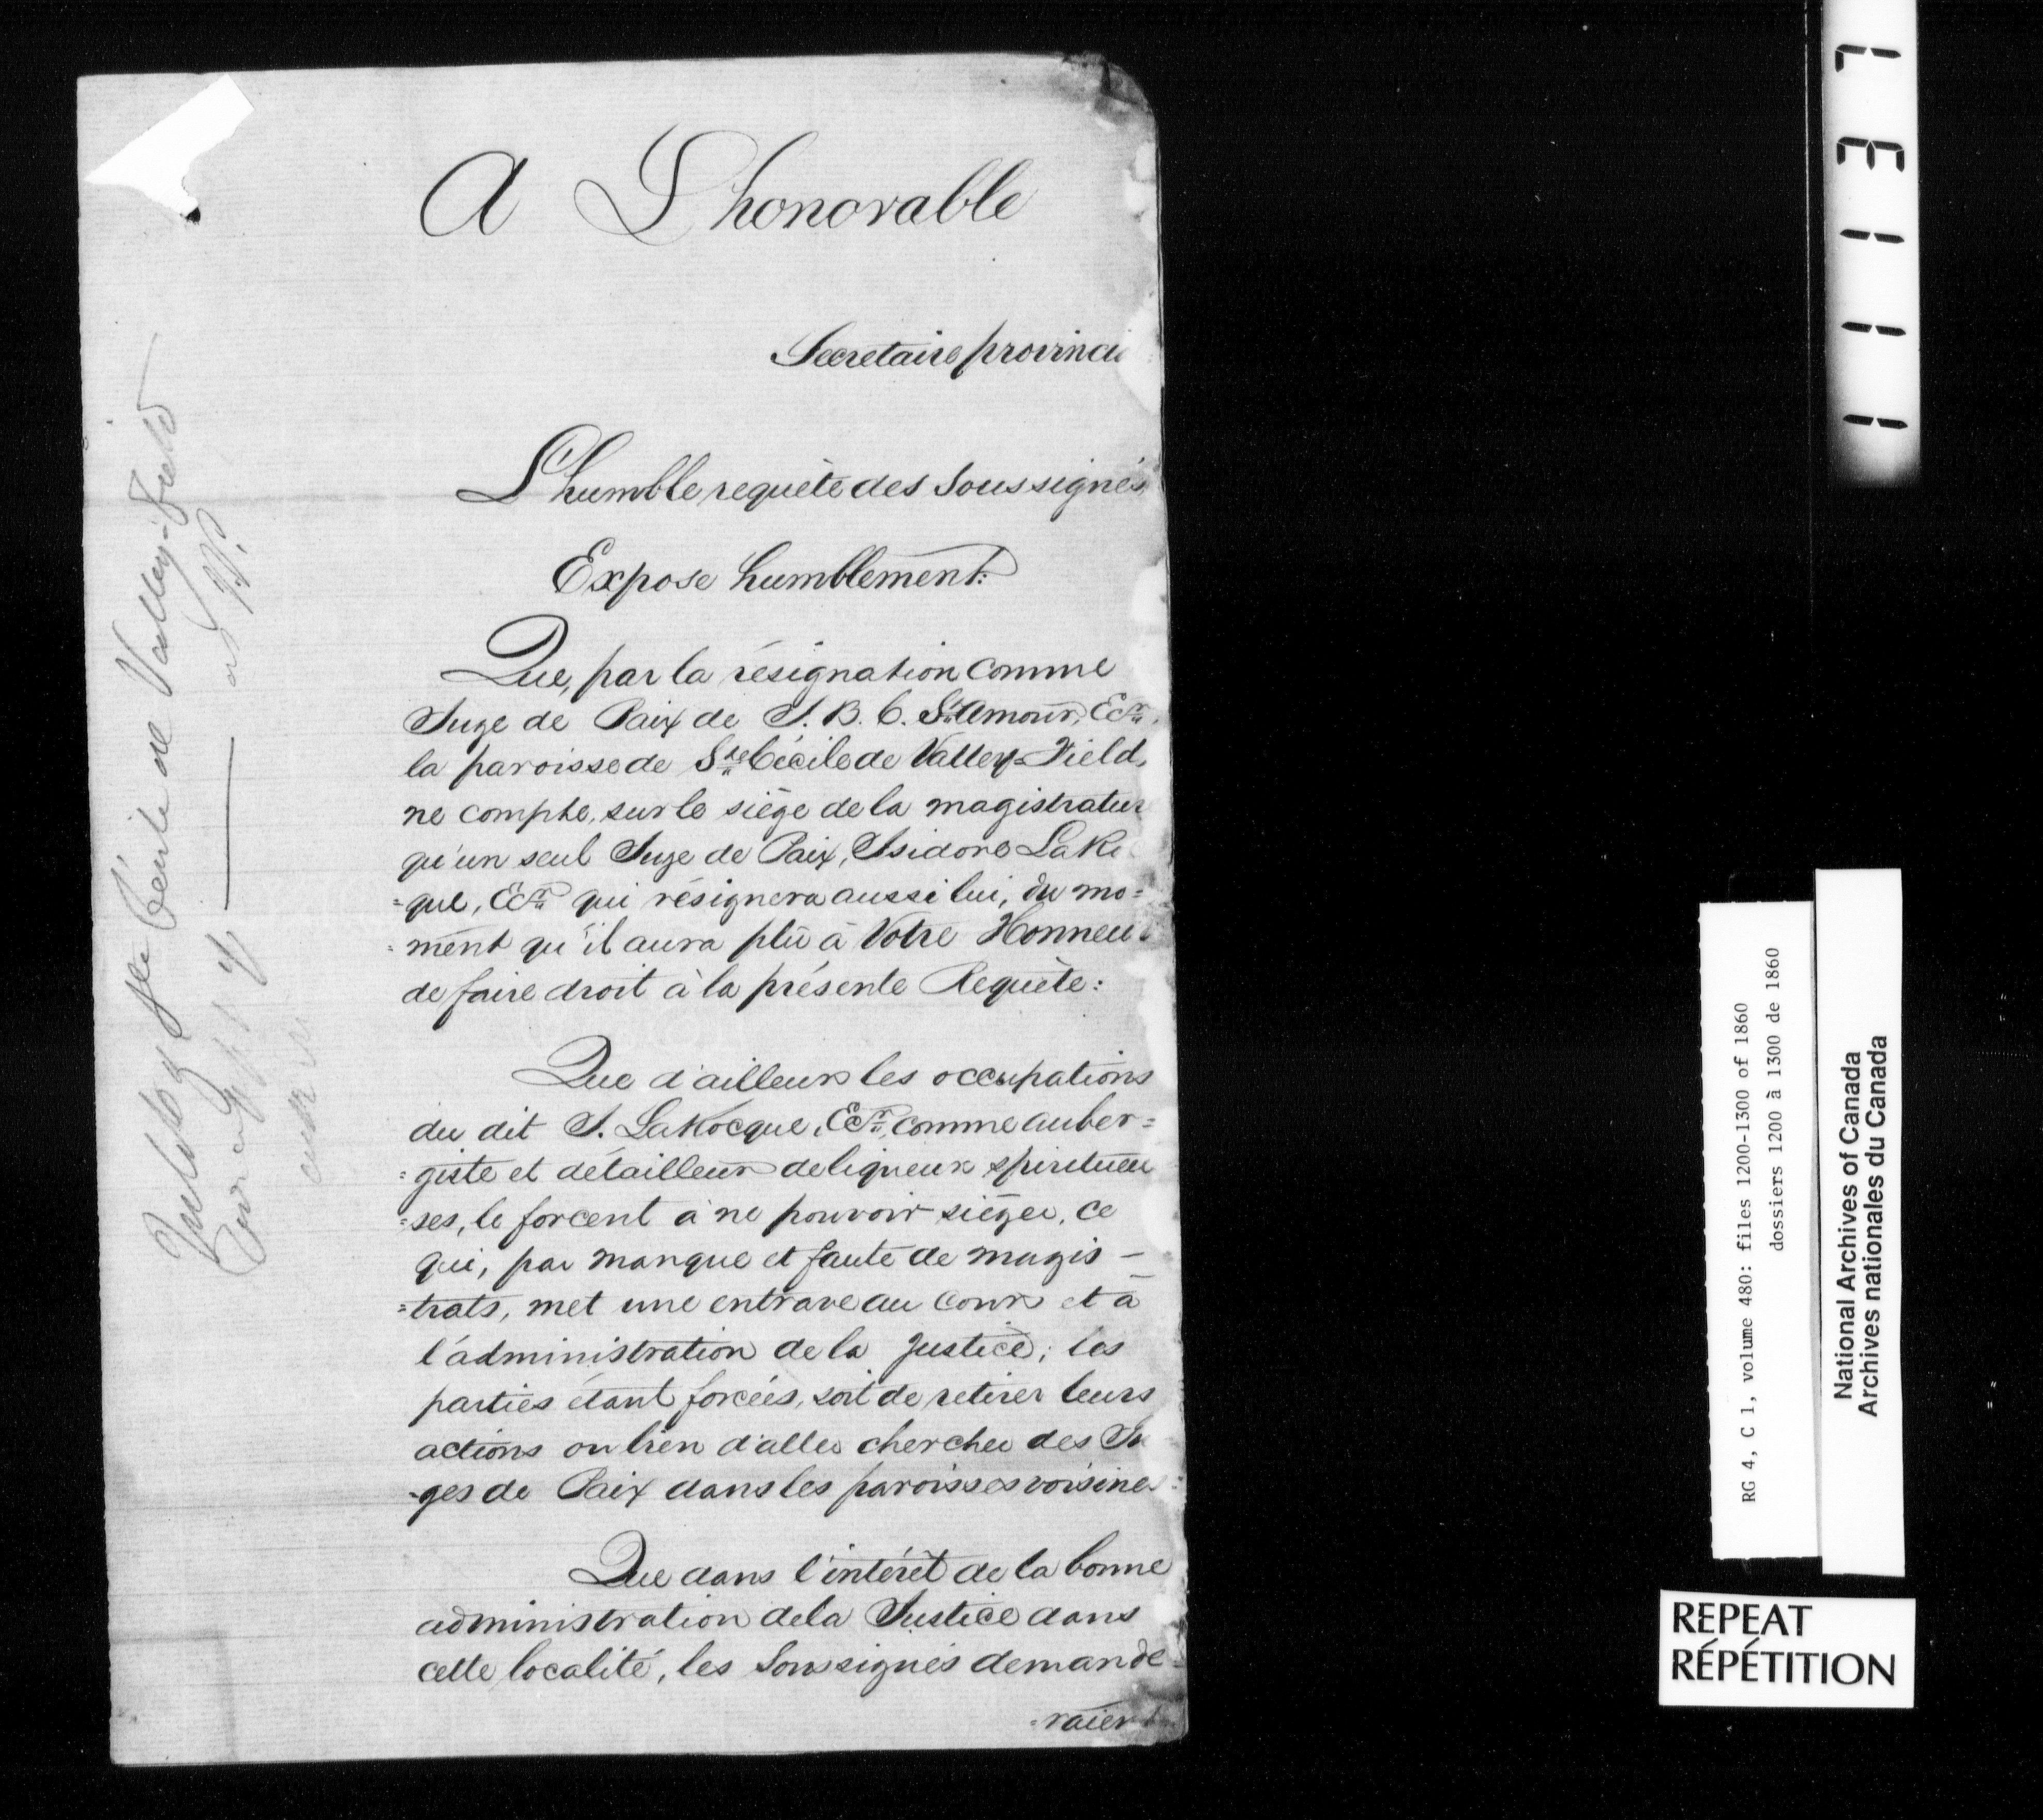 A L'honorable
Secretaire provinci
L'humble requète des Soussignés
Expose humblement:
Que, par la résignation comme
Juge de Paix de J. B. C. St Amour, Ecr.
la paroisse de Ste Cécile de Valley-Field,
ne compte, sur le siège de la magistratur
qu'un seul Juge de Paix, Isidore LaRo
=que, Ecr. qui résignera aussi lui, du mo=
=ment qu'il aura plû à Votre Honneu
de faire droit à la présente Requète:
Que d'ailleurs les occupations
du dit I. LaRocque, Ecr. comme auber=
=giste et détailleur de liqueurs spiritueu
=ses, le forcent à ne pouvoir siéger, ce
qui, par manque et faute de magis-
=trats, met une entrave au cours et à
l'administration de la justice; les
parties étant forcées, soit de retirer leurs
actions ou bien d'aller chercher des Ju
-ges de Paix dans les paroisses voisines:
Que dans l'intérèt de la bonne
administration de la Justice dans
cette localité, les Soussignés demande=
=raient
Ste Cécile de Valley-Field
L 3 1 1 1
RG 4, C 1, volume 480: files 1200-1300 of 1860
dossiers 1200 à 1300 de 1860
National Archives of Canada
Archives nationales du Canada
REPEAT
RÉPÉTITION